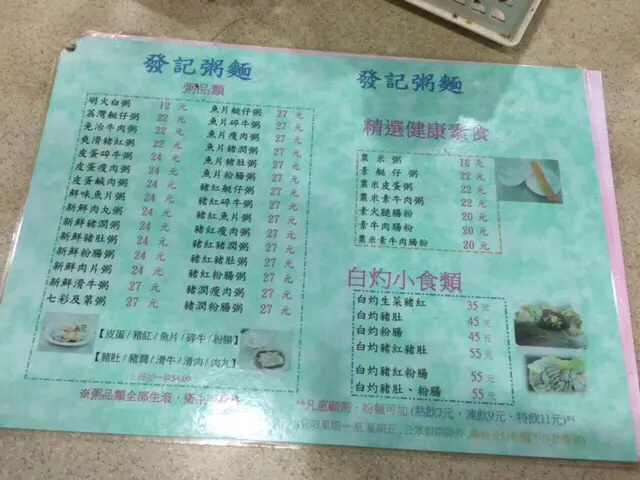 發記粥麵
粥品類
明火白粥 12 元
荔灣艇仔粥 22 元
免治牛肉粥 22 元
爽滑豬紅粥 22 元
皮蛋碎牛粥 24 元
皮蛋瘦肉粥 24 元
皮蛋鹹肉粥 24 元
鮮味魚片粥 24 元
新鮮肉丸粥 24 元
新鮮豬潤粥 24 元
新鮮豬肚粥 24 元
新鮮粉腸粥 24 元
新鮮肉片粥 24 元
新鮮滑牛粥 27 元
七彩及第粥 27 元
魚片艇仔粥 27 元
魚片碎牛粥 27 元
魚片瘦肉粥 27 元
魚片豬潤粥 27 元
魚片豬肚粥 27 元
魚片粉腸粥 27 元
豬紅艇仔粥 27 元
豬紅碎牛粥 27 元
豬紅魚片粥 27 元
豬紅瘦肉粥 27 元
豬紅豬潤粥 27 元
豬紅豬肚粥 27 元
豬紅粉腸粥 27 元
豬潤瘦肉粥 27 元
豬潤粉腸粥 27 元
【皮蛋/豬紅/魚片/碎牛/粉腸】
【豬肚/豬潤/滑牛/滑肉/肉丸】
※粥品類全部生滾
發記粥麵
精選健康素食
粟米粥 16 元
素艇仔粥 22 元
粟米皮蛋粥 22 元
粟米素牛肉粥 22 元
素火腿腸粉 20 元
素牛肉腸粉 20 元
粟米素牛肉腸粉 20 元
白灼小食類
白灼生菜豬紅 35 元
白灼豬肚 45 元
白灼粉腸 45 元
白灼豬紅豬肚 55 元
白灼豬紅粉腸 55 元
白灼豬肚、粉腸 55 元
**凡惠顧粥、粉麵可加(熱飲7元、凍飲9元、特飲11元)**
星期一至星期五,公眾假期除外